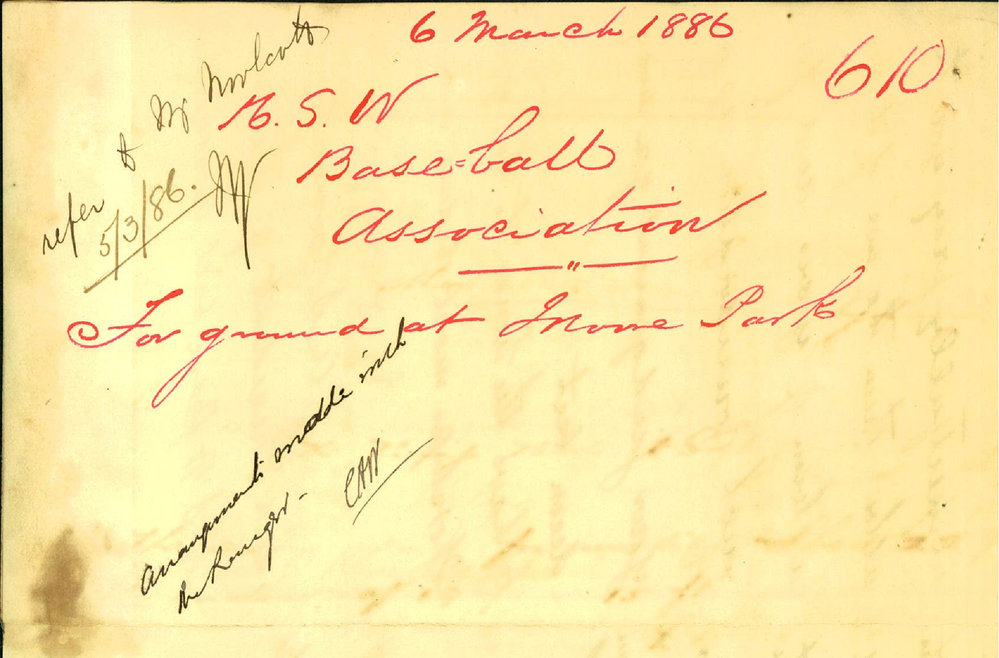 6 March 1886
610
N. S. W
Base=ball
Association
For ground at Moore Park
refer to Mr
5/3/86.
Arrangements made with
CAW